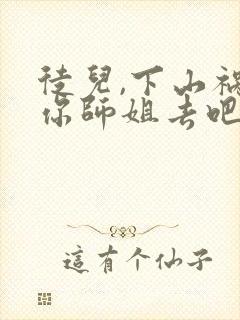 徒兒,下山祸
你師姐去吧
這有个仙子